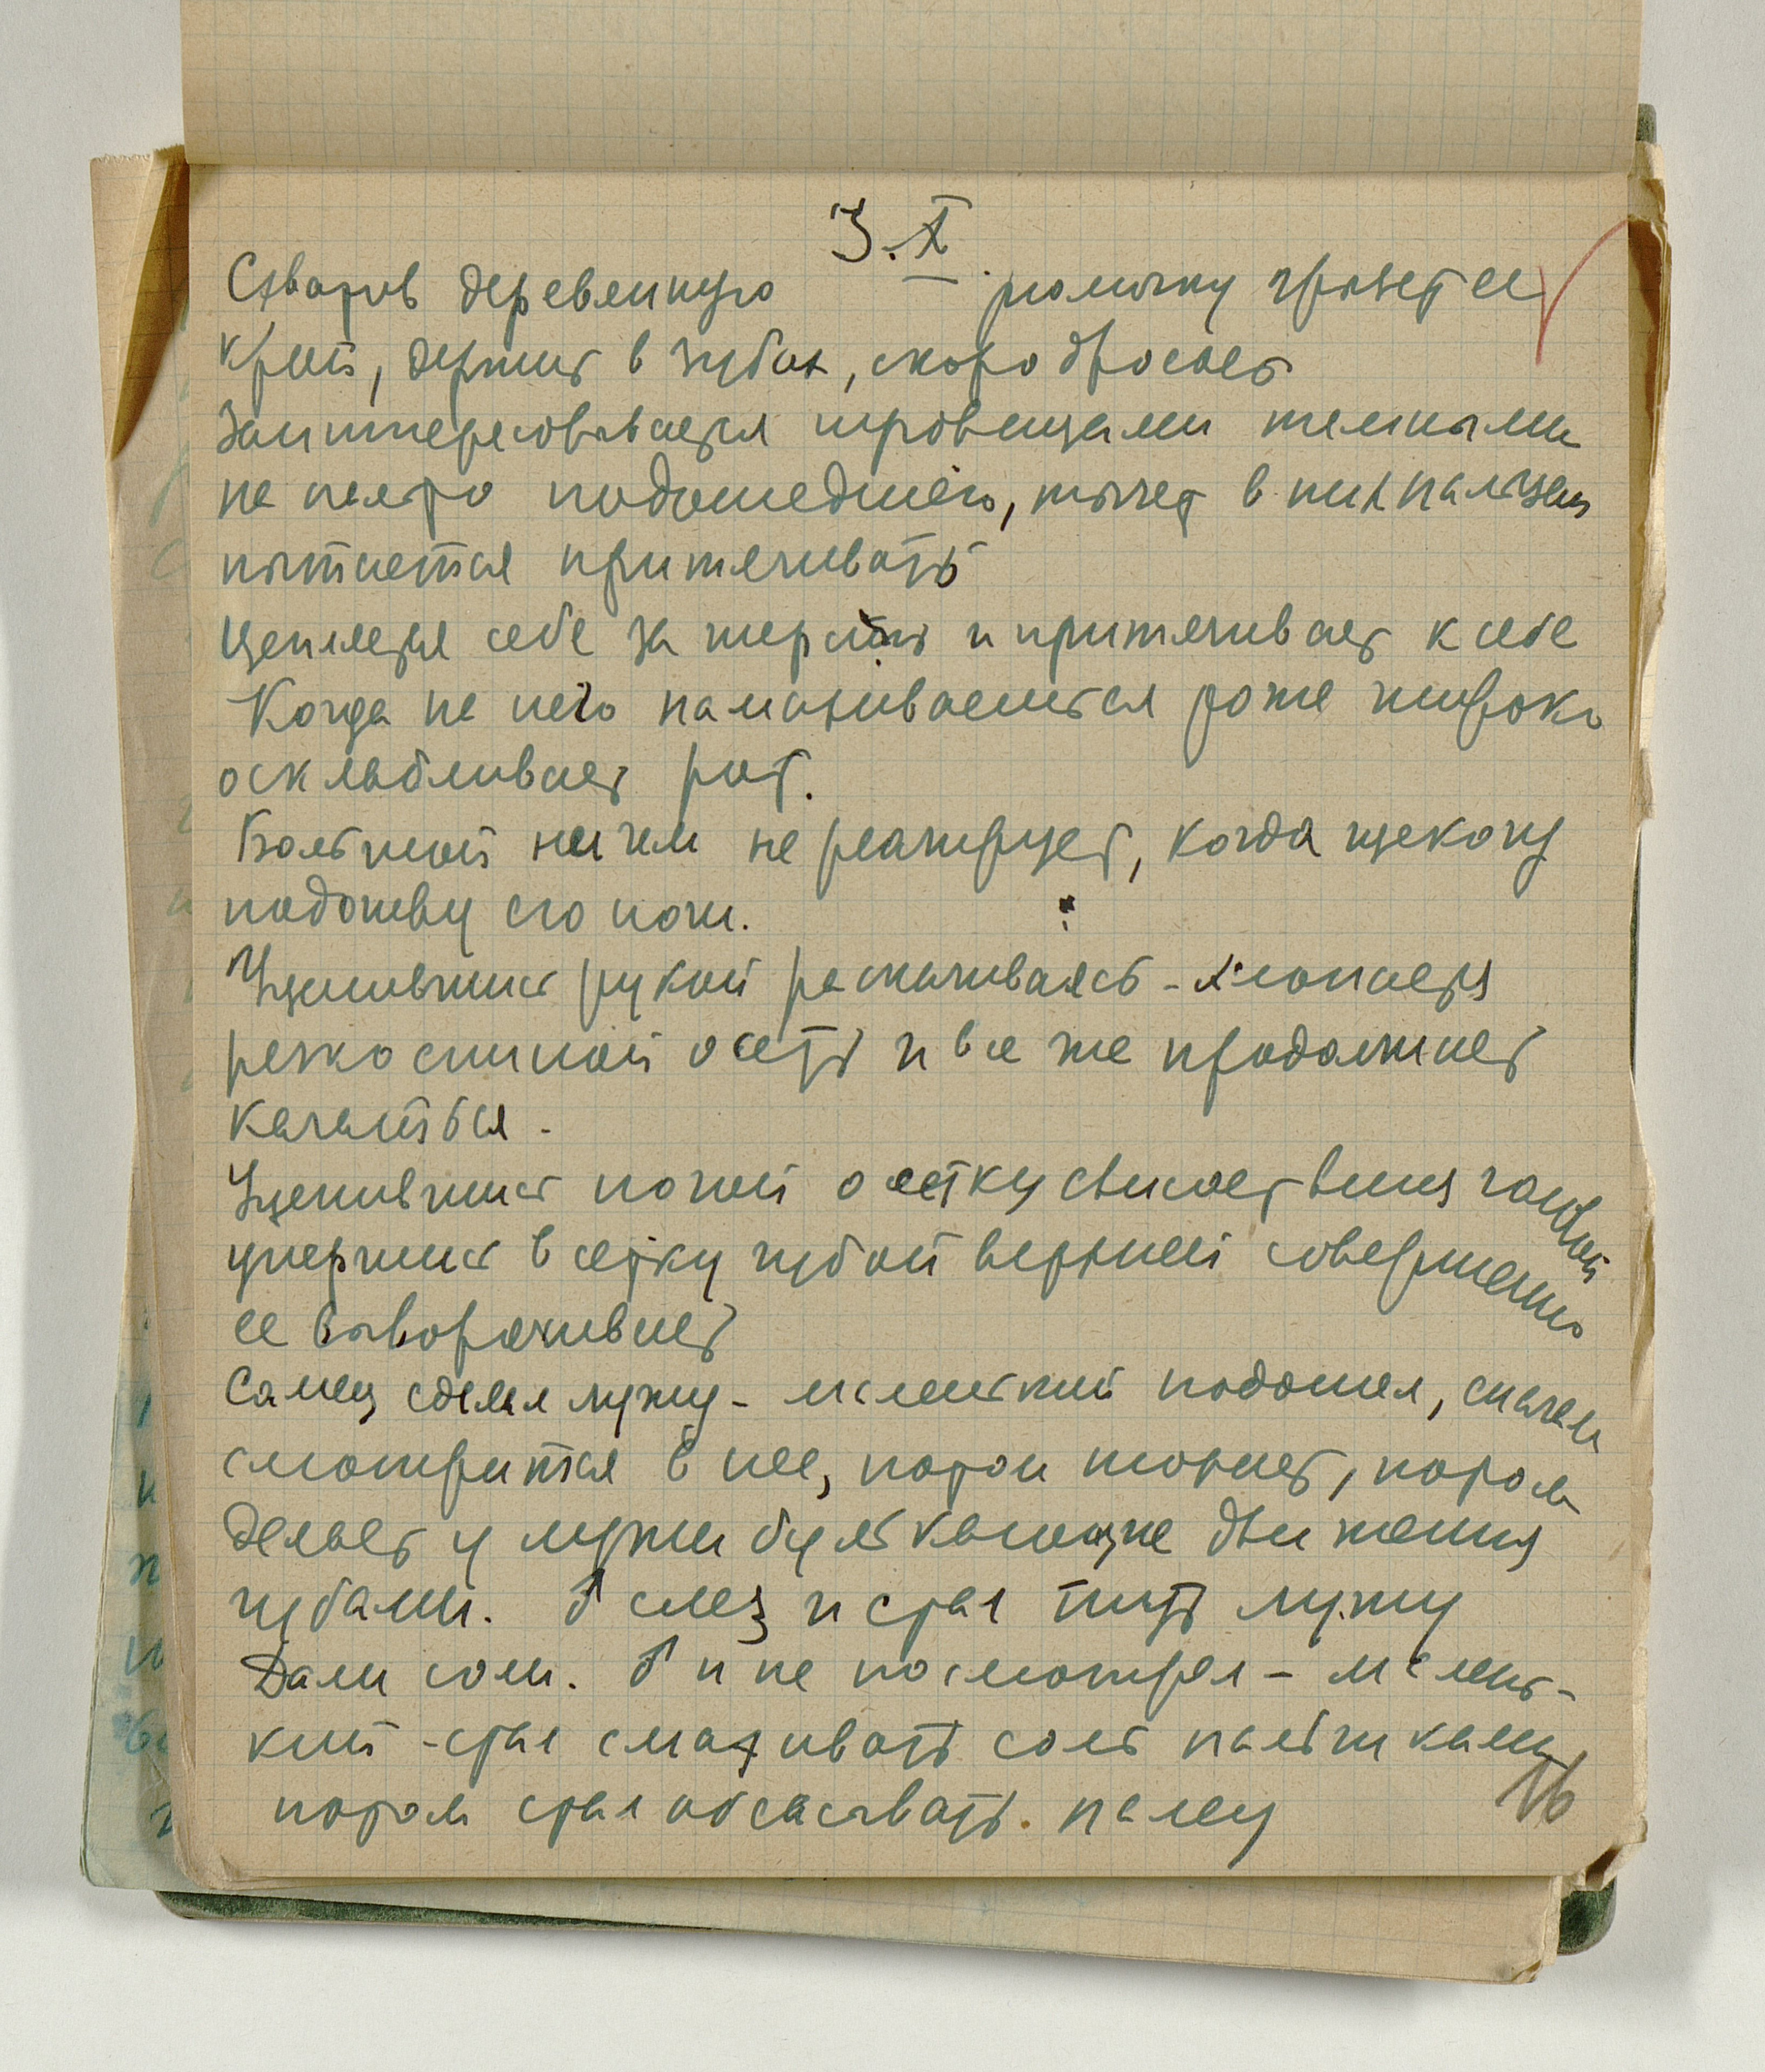 3.X
Схватив деревенную рюмочку грызет ее
край, держит в зубах, скоро бросает
Заинтересовывается пуговицами темными
на пальто подошедшего, тычет в них пальцем
пытается притягивать
Цепляется себе за шерсть и притягивает к себе
Когда на него намахиваются тоже широко
осклабливает рот.
Большой ничем не реагирует, когда щекочу
подошву его ноги.
Уцепившись рукой раскачиваясь - хлопается
резко спиной о сеть и все же продолжает
качаться -
Уцепившись ногой о сетку свисает вниз головой
упершись в сетку губой верхней совершенно
ее выворачивает
Самец сделал лужу - маленький подошел, сначала
смотрится в нее, потом трогает, потом
делает у лужи булькающие движения
губами. Б слез и стал пить лужу
Дали соли. Б и не посмотрел - малень-
кий - стал смазывать соль пальчиками
потом стал обсасывать палец
16